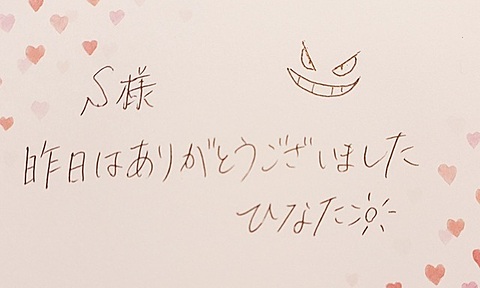 S様
昨日はありがとうございました
ひなた